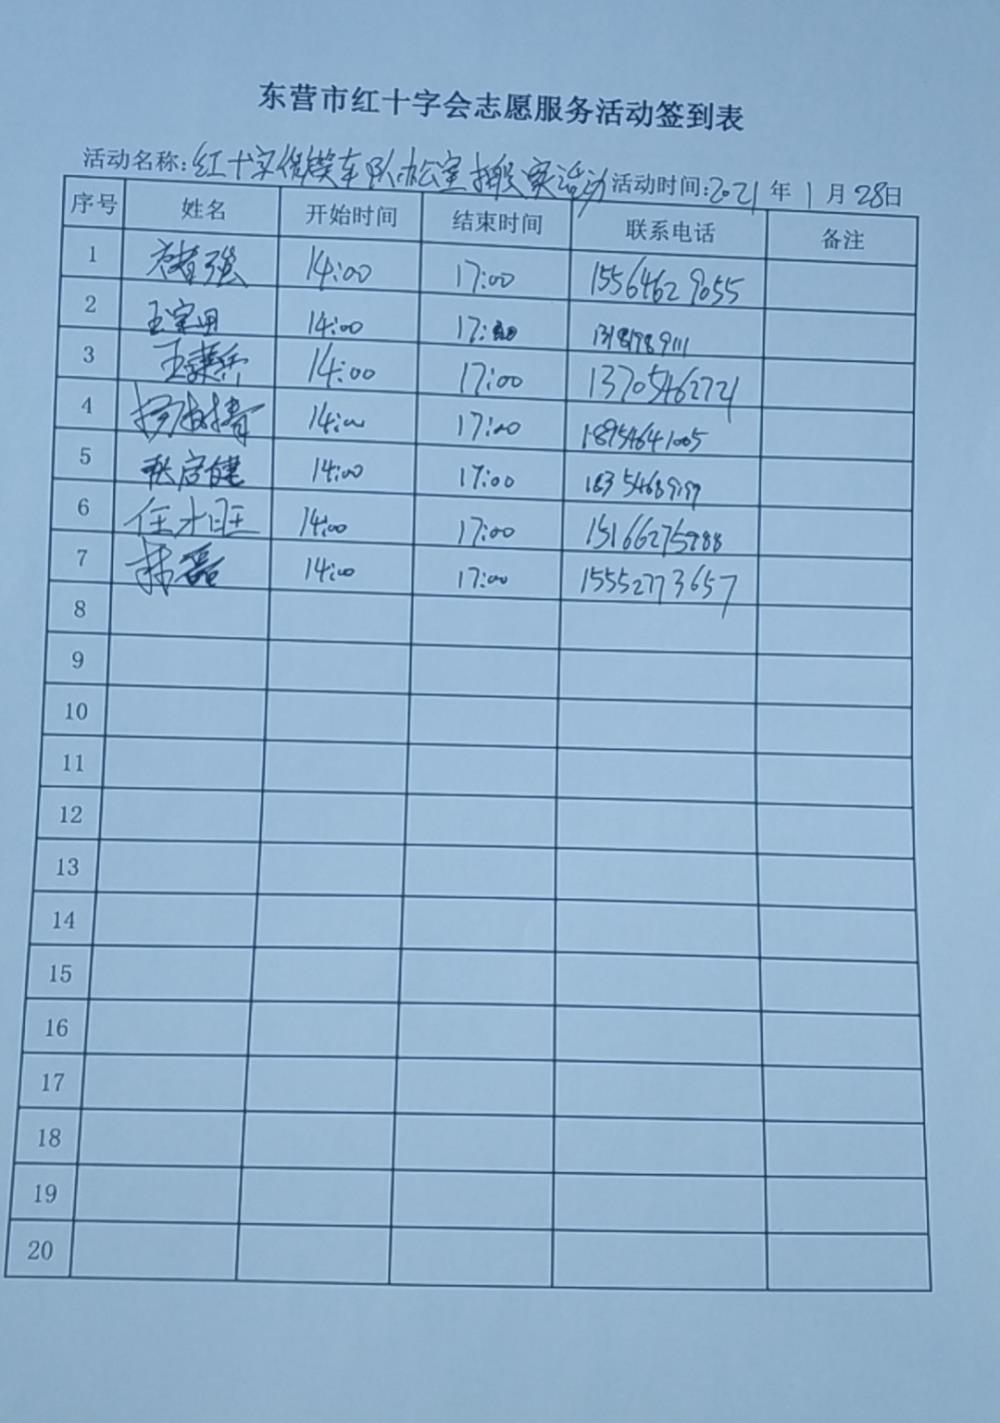 东营市红十字会志愿服务活动签到表
活动名称:红十字微笑车队办公室搬家活动 活动时间:2021年1月28日
序号 姓名 开始时间 结束时间 联系电话 备注
1 褚强 14:00 17:00 15564629055
2 王宝田 14:00 17:00 13181989111
3 14:00 17:00 13705462721
4 杨树青 14:00 17:00 18954641005
5 14:00 17:00 18354689199
6 任才旺 14:00 17:00 15166275988
7 林磊 14:00 17:00 15552773657
8
9
10
11
12
13
14
15
16
17
18
19
20